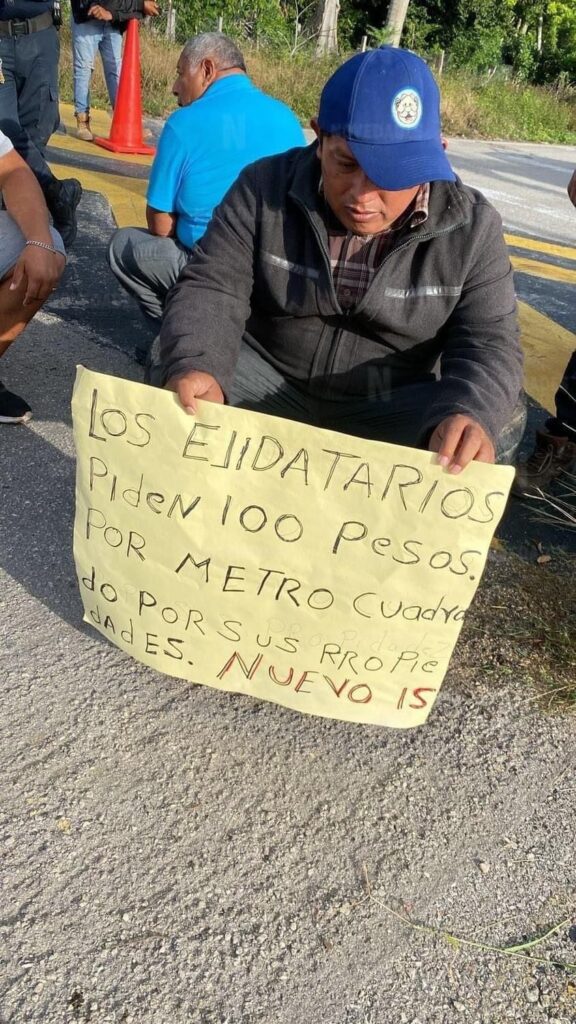 LOS EJIDATARIOS
PIDEN 100 PESOS.
POR METRO CUADRA
dO POR SUS PROPIE
dADES. NUEVO IS